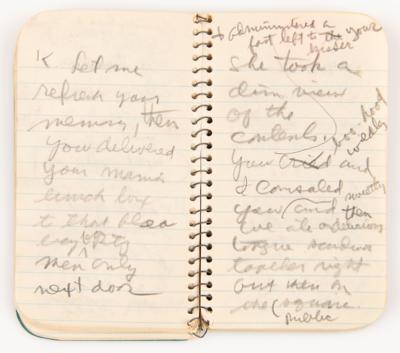 Let me
refresh your
memory, then
you delivered
your mama's
lunch box
to that
men only
next door
+ administered a
fast left to the your
kisser
she took a
dim view
of the
contents.
boo-hood
You cried and
weakly
I consoled
you and then
we ate a delicious
tongue
together right
out then on
the square.
public